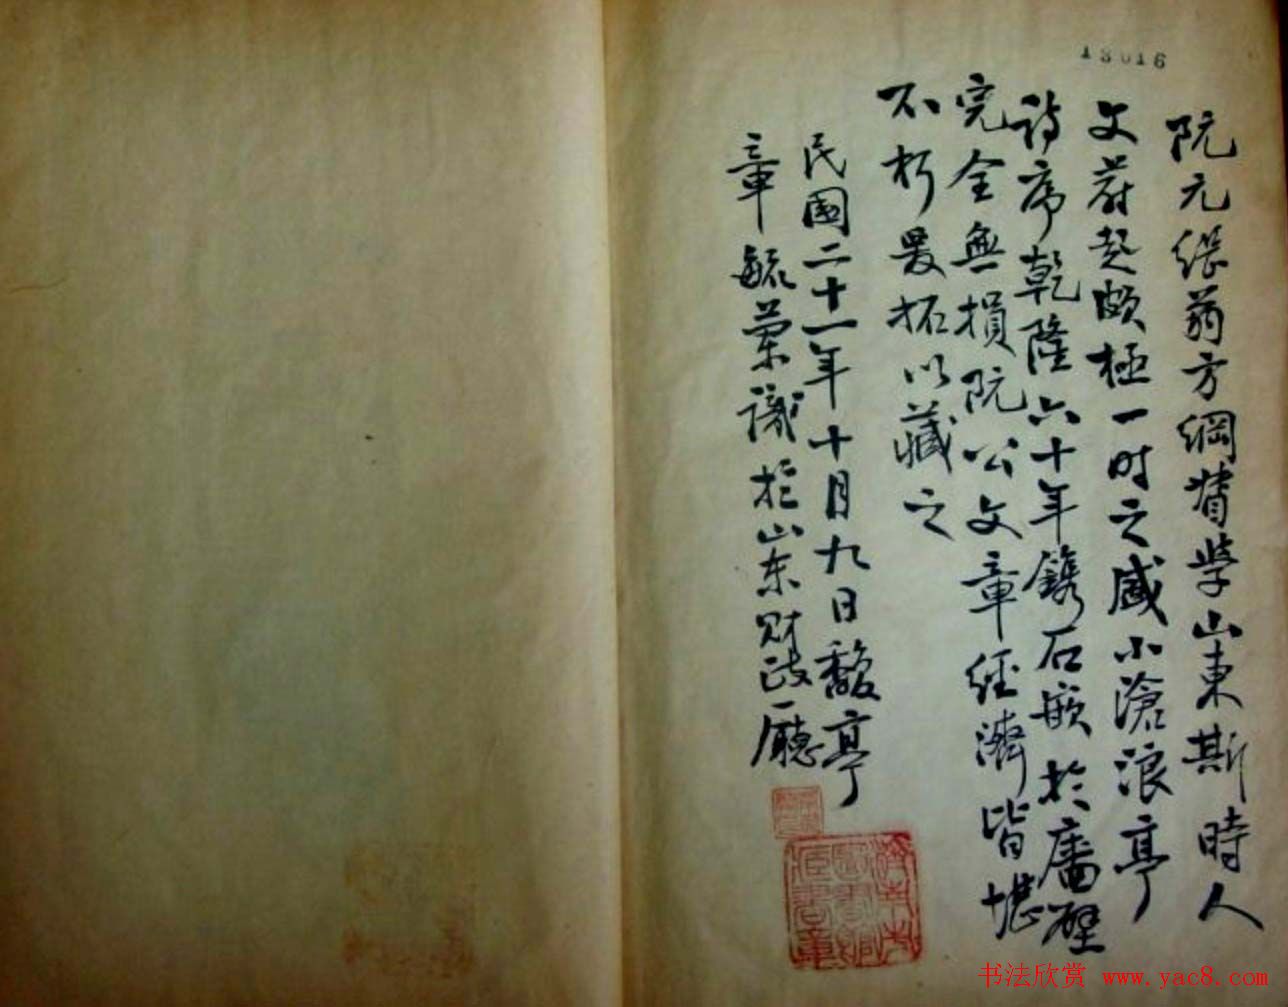 13016
阮元继翁方綱督学山東斯時人
文蔚起頗極一时之盛小滄浪亭
詩序乾隆六十年鐫石嵌於廧壁
完全無損阮公文章經濟皆堪
不朽爰拓以藏之
民國二十一年十月九日馥亭
章毓蘭識於山东财政廳
濟南市
圖書館
臧書章
书法欣赏 www.yac8.com